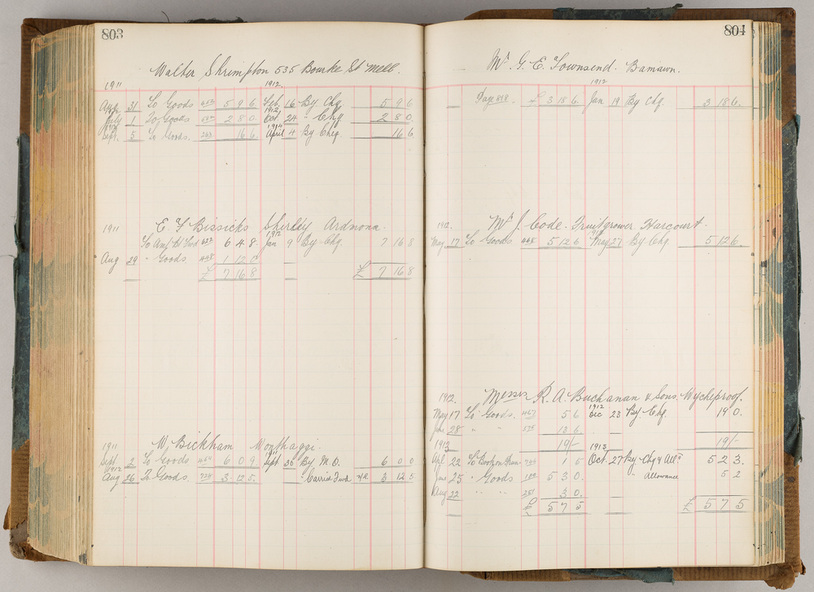 803
Walter Shrimpton 535 Bourke St Melb.
1911 1912
31 To Goods 5 9 6 Feb 16 By Chq 5 9 6
July 1 To Goods 2 8 0 Oct 24 " Chq 2 8 0
Sept. 5 To Goods 16 6 April 4 By Chq 16 6
1911 E T Bissicks Ardnona
6 4 8 Jan 9 By Chq 7 16 8
Aug 29 " Goods
£ 7 16 8 £ 7 16 8
1911 W. Bickham Wonthaggi
Sept 2 To Goods 6 0 9 Sept 25 By M.O. 6 0 0
1912
Aug 26 To Goods 3 12 5 " 3 12 5
804
Mr G. E. Townsend. Bamawn.
1912
£ 3 18 6 Jan 19 By Chq 3 18 6.
1912. Mr J. Code. Fruitgrower Harcourt.
May 17 To Goods 5 12 6 May 27 By Chq 5 12 6
1912. Messrs R. A. Buchanan & Sons. Wycheproof.
May 17 To Goods 5 6 Dec 23 By Chq 19 0.
28 " " 13 6
1913 19/- 1912 19/-
22 To 1 5 Oct 27 By Chq & 5 2 3.
25 " Goods 5 3 0 " Allowance 5 2
Aug 22 " " 3 0.
£ 5 7 5 £ 5 7 5